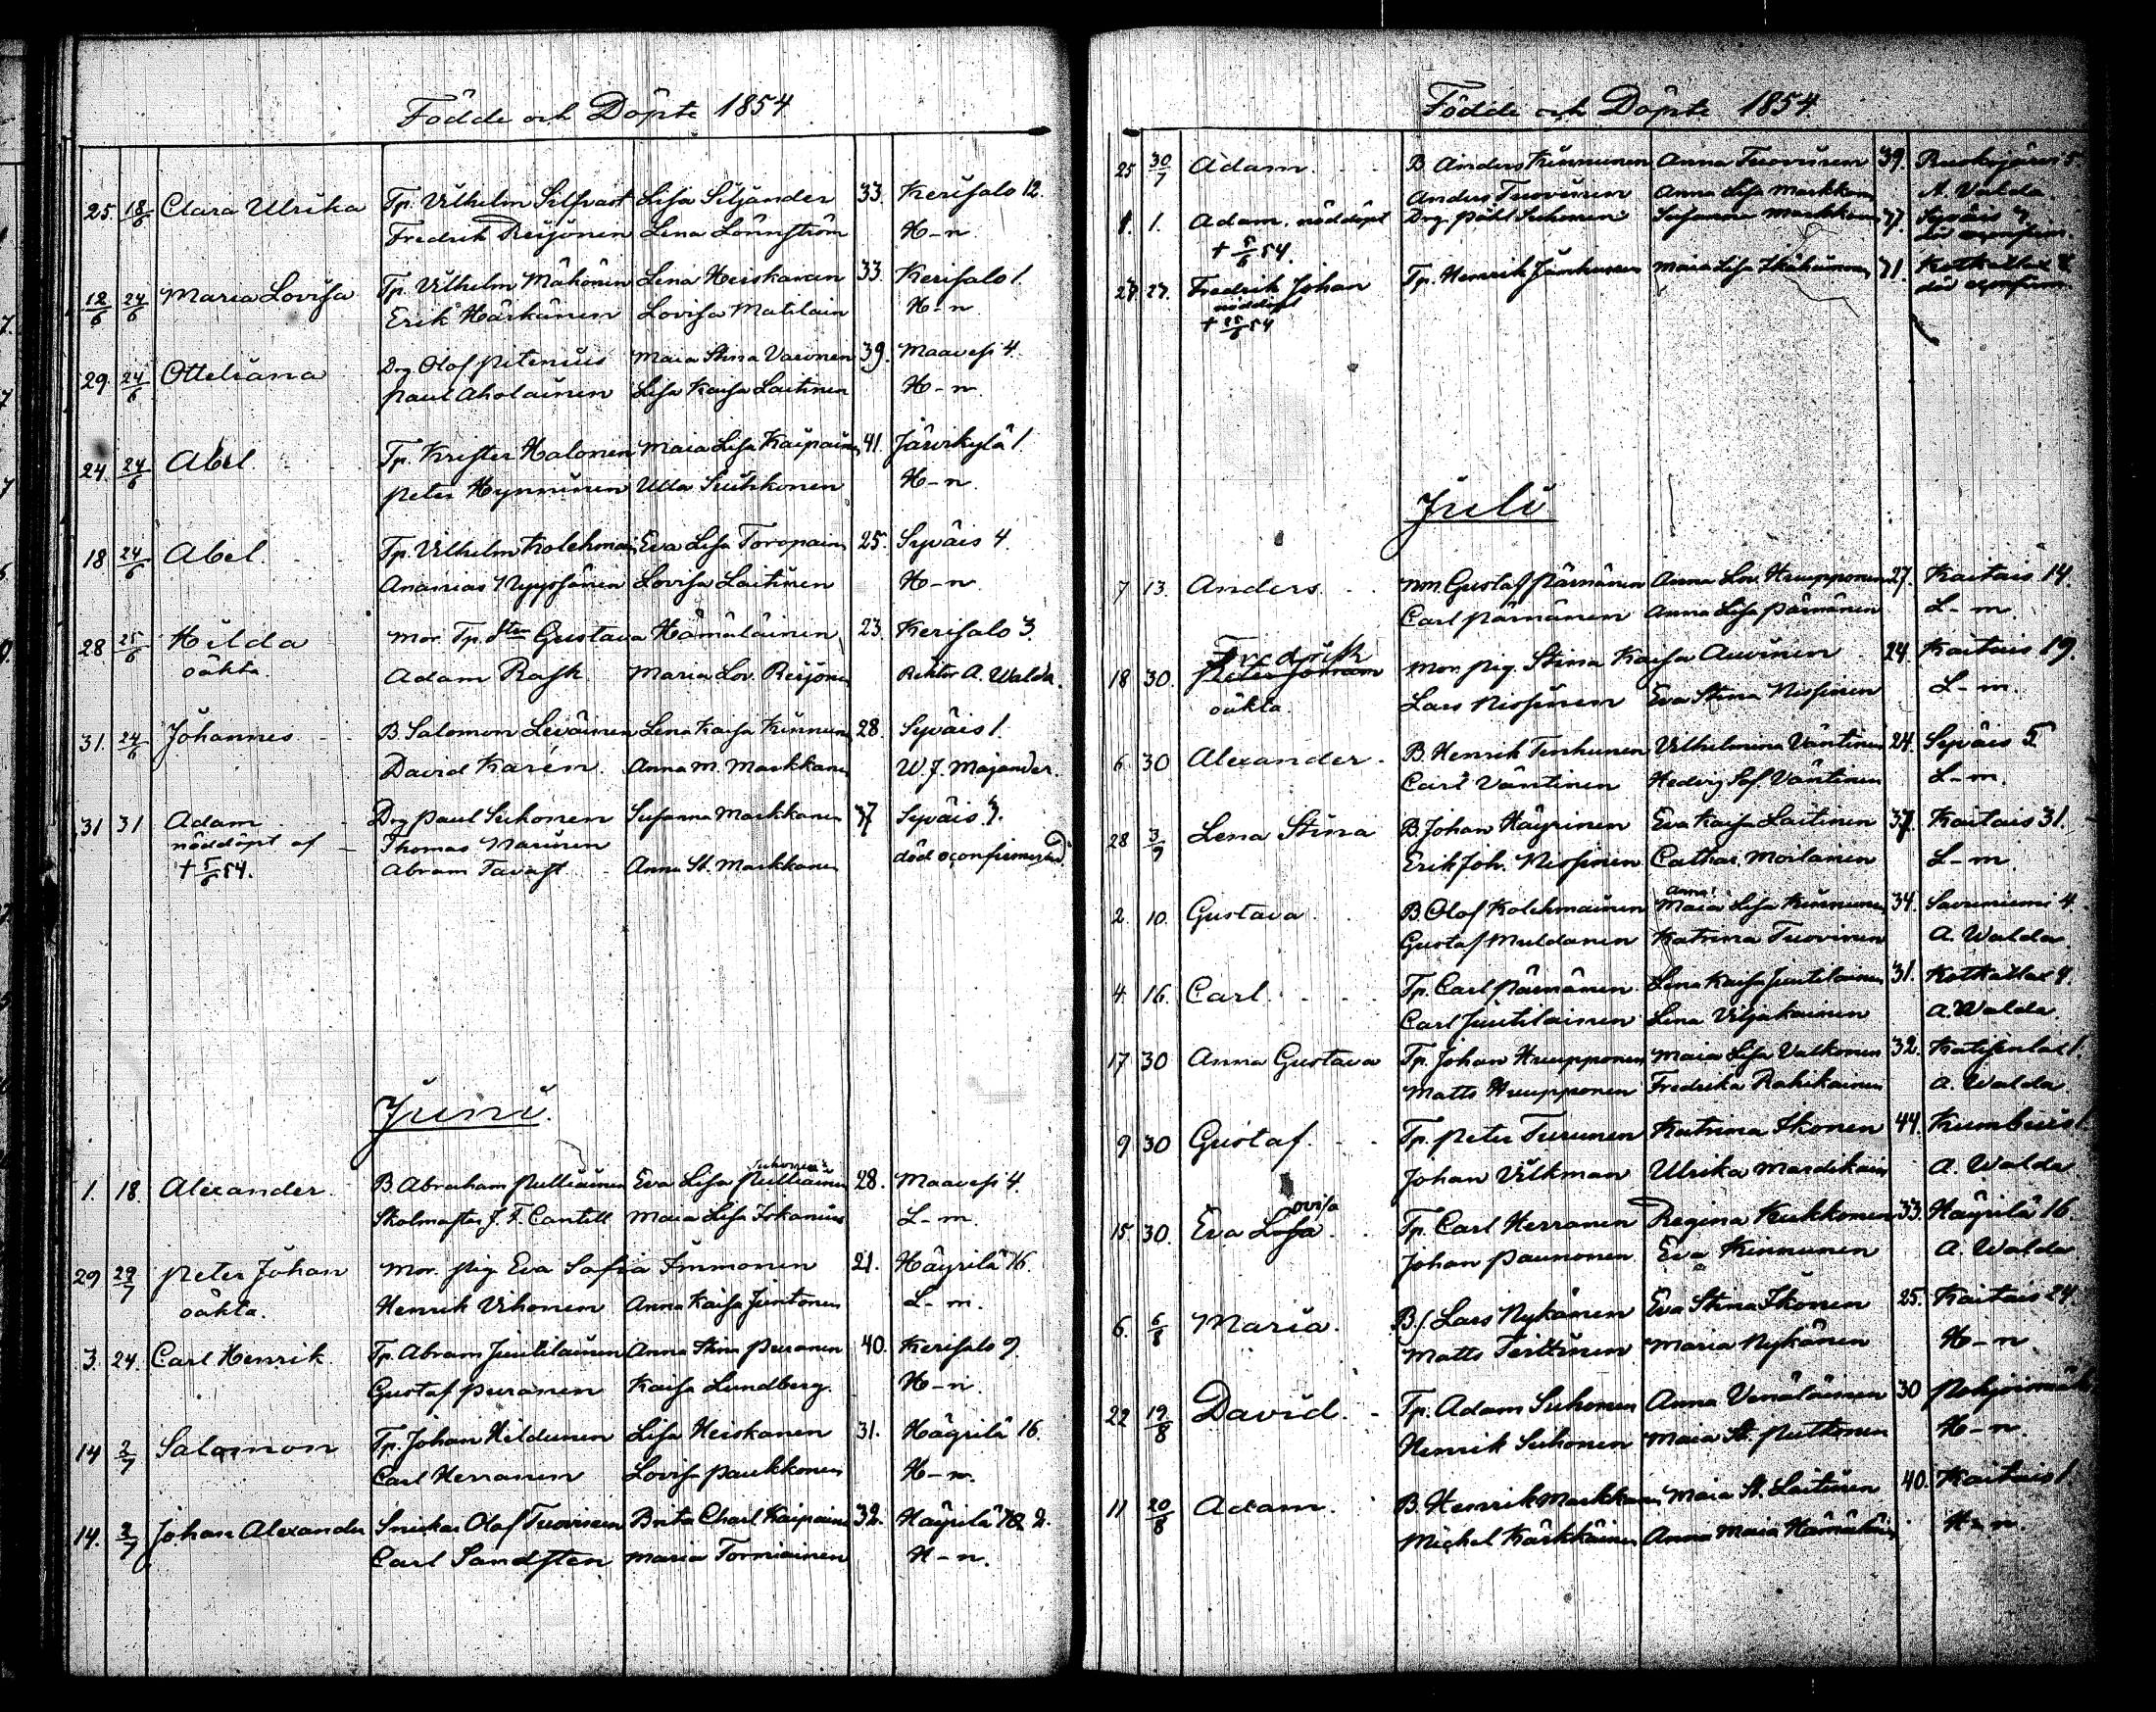 Födde och Döpte 1854
25. 18/6 Clara Ulrika Tp. Vilhelm Silfvast Lisa Siljander 33. Kerisalo 12.
Fredrik Reijonen Lena Lönnström H-n
12/6 24/6 Maria Lovisa Tp. Vilhelm Mähönen Lena Heiskanen 33. Kerisalo 1.
Erik Härkänen Lovisa Matilain H-n
29. 24/6 Otteliana Drg Olof Pitenius Maia Stina Varonen 39. Maavesi 4.
Paul Aholainen Lisa Kaisa Laitinen H-n.
24. 24/6 Abel. Tp. Krister Halonen Maia Lisa Kaipain 41. Järvikylä 1.
Peter Hynninen Ulla Suhkonen H-n.
18 24/6 Abel. Tp. Vilhelm Kolehmai Eva Lisa Toropain 25. Syväis 4.
Ananias Nyyssönen Lovisa Laitinen H-n.
28 25/6 Hilda Mor. Tp. Gustava Hämäläinen 23. Kerisalo 3.
oäkta. Adam Rask. Maria Lov. Reijone Rektor A. Walda.
31. 24/6 Johannes. B. Salomon Leväinen Lena Kaisa Kinnune 28. Syväis 1.
David Karén. Anna M. Markkane W. J. Majander.
31 31 Adam Drg Paul Suhonen Susanna Markkane 37 Syväis 7.
nöddöpt af Thomas
+ 5/6 54. Abram Tavast Anna St. Markkane död oconfirmerad
Juni.
1. 18. Alexander. B. Abraham Pulliainen Eva Lisa Pulliainen Suhonen 28. Maavesi 4.
Skolmäster J. F. Cantell Maia Lisa L-m.
29 29/7 Peter Johan Mor. Pig. Eva Sofia Immonen 21. Häyrilä 16.
oäkta. Henrik Vihonen Anna Kaisa Juntonen L-m.
3. 24. Carl Henrik. Tp. Abram Juutilainen Anna Stina Puranen 40. Kerisalo 9
Gustaf Puranen Kaisa Lundberg. H-n.
14 2/7 Salomon Tp. Johan Hildunen Lisa Heiskanen 31. Häyrilä 16.
Carl Herranen Lovisa Paukkonen H-n.
14. 2/7 Johan Alexander Snickar Olof Tuovinen Brita Charl. Kaipaine 32. Häyrilä 2.
Carl Sandsten Maria Torniainen H-n.
Födde och Döpte 1854
25 30/7 Adam. B Anders Kinnunen Anna Tuovinen 39. 5
Anders Tuovinen Anna Lisa Markkan A. Valda.
1. 1. Adam. nöddöpt Drg. Påhl Suhonen Susanna Markkan 37. Syväis 7.
+ 5/6 54.
27. 27. Fredrik Johan Tp. Henrik Maia Lisa 31.
nöddöpt
Juli
7 13. Anders. Nm. Gustaf Pärnänen Anna Lov. Huupponen 27. Kaitais 14.
Carl Pärnänen Anna Lisa Pärnänen L-m.
Fredrik
18 30. Peter Johan Mor. Pig. Stina Kaisa Auvinen 24. Kaitais 19.
oäkta. Lars Nissinen Eva Stina Nissinen L-m.
6. 30 Alexander. B. Henrik Tenhunen Vilhelmina Väntinen 24. Syväis 5
Carl Väntinen Hedvig Sof. Väntinen L-m.
28 3/9 Lena Stina B. Johan Häyrinen Eva Kaisa Laitinen 37. Kaitais 31.
Erik Joh. Nissinen Cathar. Moilanen L-m.
2. 10. Gustava. B. Olof Kolehmainen Anna Maia Lisa Kinnunen 34. Savuniemi 4.
Gustaf Muldanen Katrina Tuovinen A. Walda.
4. 16. Carl. Tp. Carl Pärnänen Lena Kaisa Juutilainen 31.
Carl Juutilainen Lena Viljakainen A. Walda.
17 30 Anna Gustava Tp. Johan Huupponen Maia Lisa Valkonen 32.
Matts Huupponen Fredrika Rahikainen A. Walda.
9 30 Gustaf. Tp. Peter Turunen Katrina Ikonen 44.
Johan Vilkman Ulrika A. Walda
ovisa
15 30. Eva Lisa. Tp. Carl Herranen Regina Kukkonen 33. Häyrilä 16
Johan Paunonen Eva Kinnunen A. Walda
6. 6/8 Maria. B. Lars Nykänen Eva Stina Ikonen 25. Kaitais 24.
Matts Teittinen Maria Nykänen H-n
22 19/8 David. Tp. Adam Suhonen Anna Venäläinen 30
Henrik Suhonen Maia St. Puttonen H-n.
11 20/8 Adam. B. Henrik Markkane Maia St. Laitinen 40. Kaitais 1.
Michel Kärkkäinen Anna Maia Hämäläin H-n.